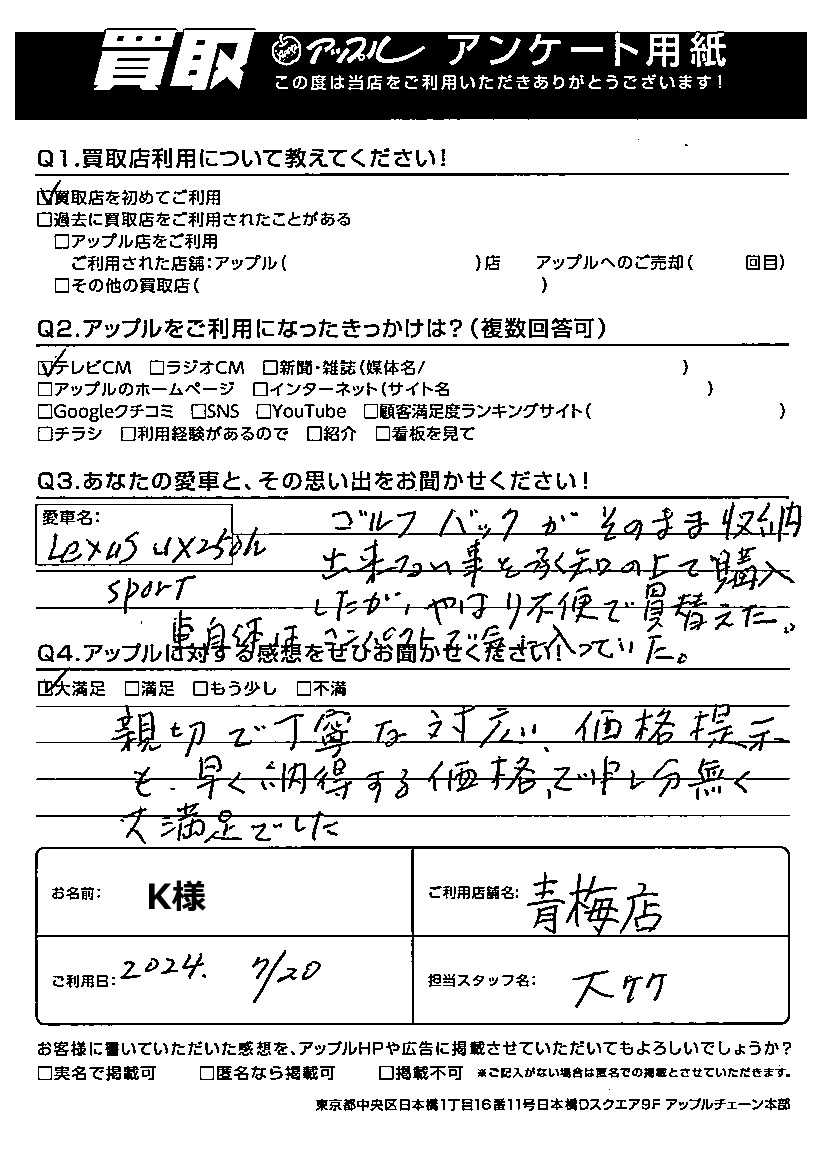 買取 アップル アンケート用紙
この度は当店をご利用いただきありがとうございます!
Q1.買取店利用について教えてください!
☑買取店を初めてご利用
□過去に買取店をご利用されたことがある
□アップル店をご利用
ご利用された店舗:アップル( )店 アップルへのご売却( 回目)
□その他の買取店( )
Q2.アップルをご利用になったきっかけは?(複数回答可)
☑テレビCM □ラジオCM □新聞・雑誌(媒体名/ )
□アップルのホームページ □インターネット(サイト名 )
□Googleクチコミ □SNS □YouTube □顧客満足度ランキングサイト( )
□チラシ □利用経験があるので □紹介 □看板を見て
Q3.あなたの愛車と、その思い出をお聞かせください!
愛車名:
Lexus UX250h
sport
ゴルフバックがそのまま収納
出来ない事を承知の上で購入
したが、やはり不便で買替えた。
車自体は コンパクトで気に入っていた。
Q4.アップルに対する感想をぜひお聞かせください!
☑大満足 □満足 □もう少し □不満
親切で丁寧な対応、価格提示
も、早く納得する価格で申し分無く
大満足でした
お名前: K様
ご利用店舗名: 青梅店
ご利用日: 2024. 7/20
担当スタッフ名: 大竹
お客様に書いていただいた感想を、アップルHPや広告に掲載させていただいてもよろしいでしょうか?
□実名で掲載可 □匿名なら掲載可 □掲載不可 ※ご記入がない場合は匿名での掲載とさせていただきます。
東京都中央区日本橋1丁目16番11号日本橋Dスクエア9F アップルチェーン本部